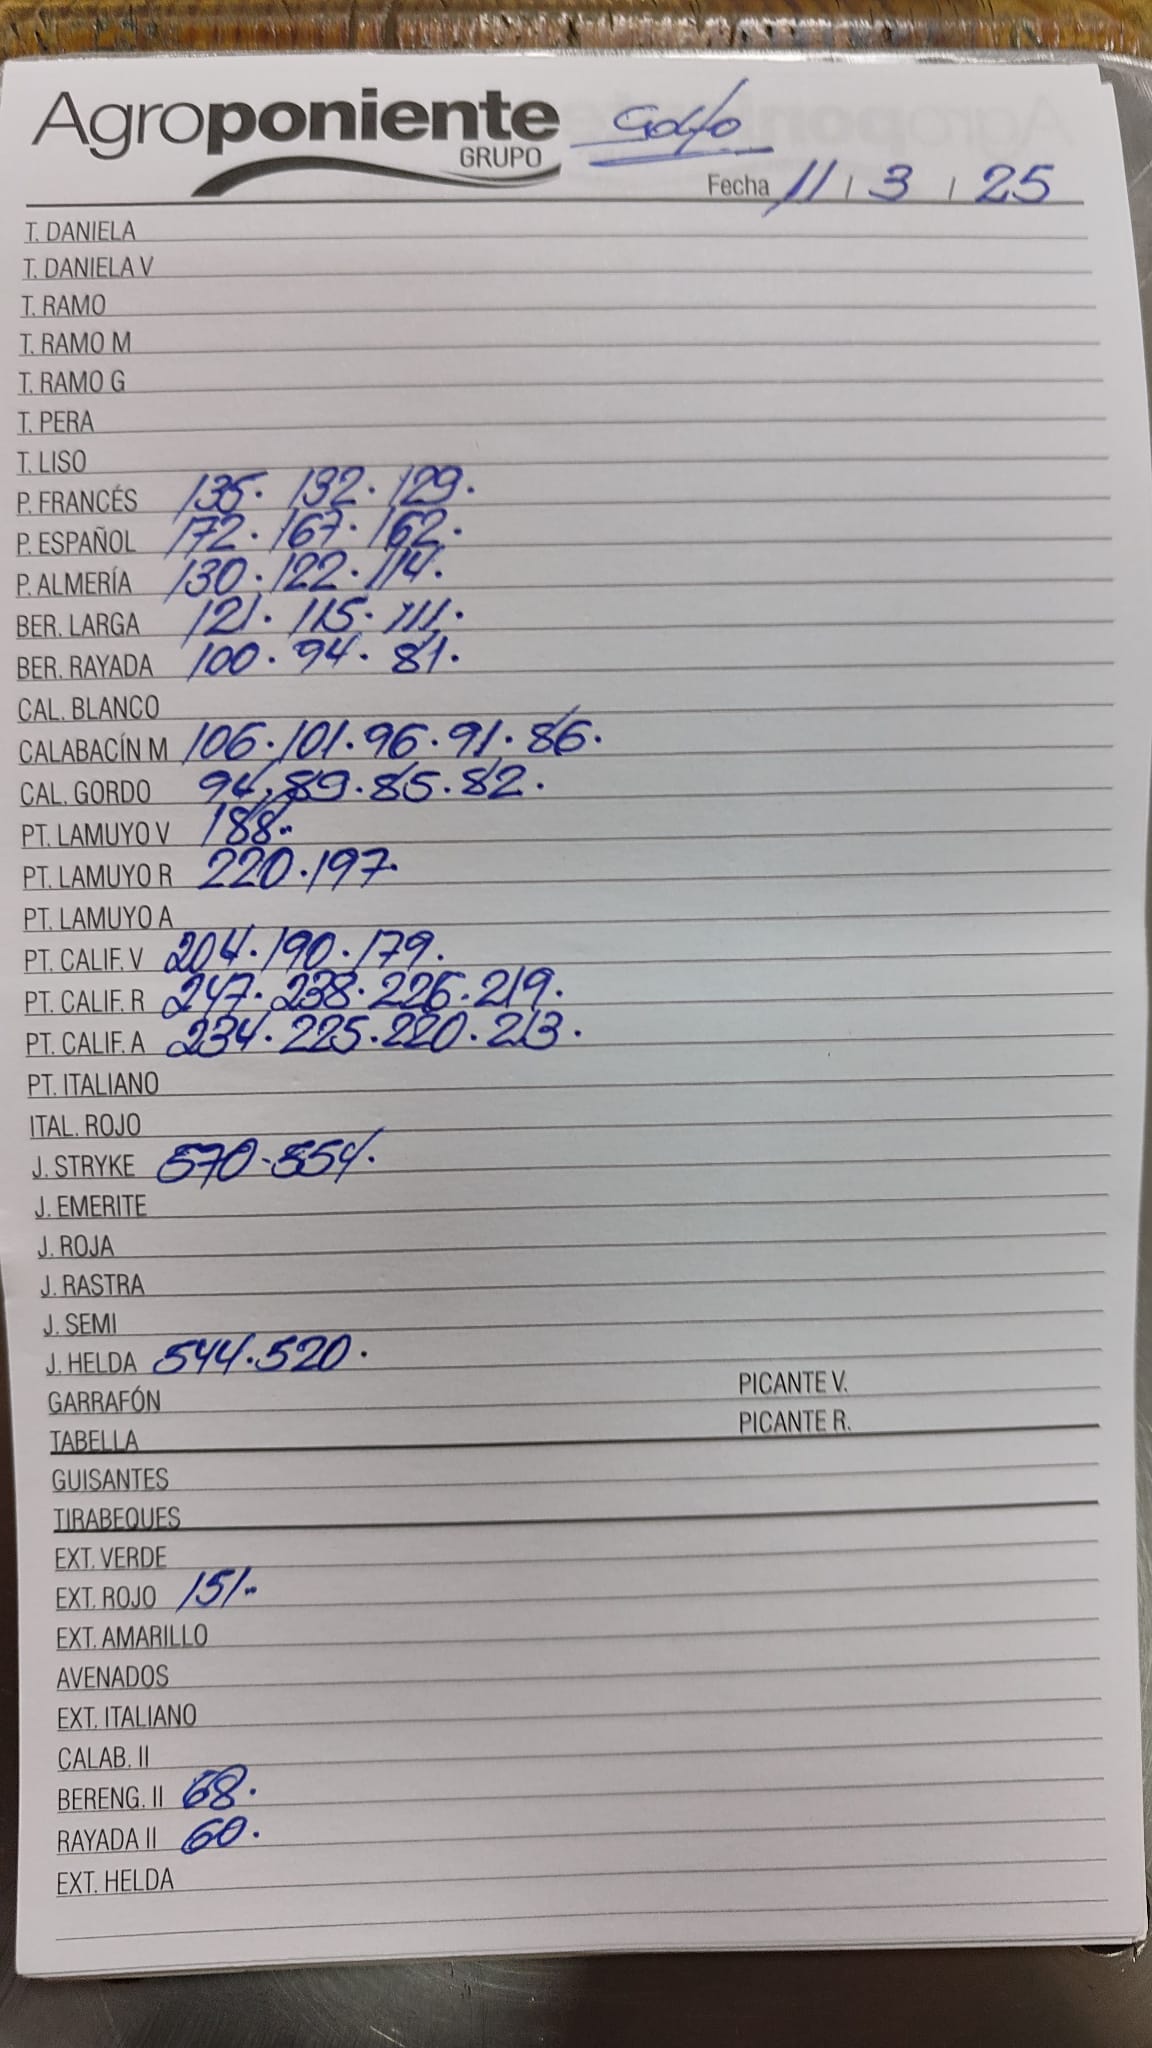 Agroponiente
GRUPO
Golfo
Fecha 11 / 3 / 25
T. DANIELA
T. DANIELA V
T. RAMO
T. RAMO M
T. RAMO G
T. PERA
T. LISO
P. FRANCÉS 135. 132. 129.
P. ESPAÑOL 172. 167. 162.
P. ALMERÍA 130. 122. 114.
BER. LARGA 121. 115. 111.
BER. RAYADA 100. 94. 81.
CAL. BLANCO
CALABACÍN M 106. 101. 96. 91. 86.
CAL. GORDO 94. 89. 85. 82.
PT. LAMUYO V 188..
PT. LAMUYO R 220. 197.
PT. LAMUYO A
PT. CALIF. V 204. 190. 179.
PT. CALIF. R 247. 238. 226. 219.
PT. CALIF. A 234. 225. 220. 213.
PT. ITALIANO
ITAL. ROJO
J. STRYKE 570-554.
J. EMERITE
J. ROJA
J. RASTRA
J. SEMI
J. HELDA 544. 520.
GARRAFÓN PICANTE V.
TABELLA PICANTE R.
GUISANTES
TIRABEQUES
EXT. VERDE
EXT. ROJO 151..
EXT. AMARILLO
AVENADOS
EXT. ITALIANO
CALAB. II
BERENG. II 68.
RAYADA II 60.
EXT. HELDA